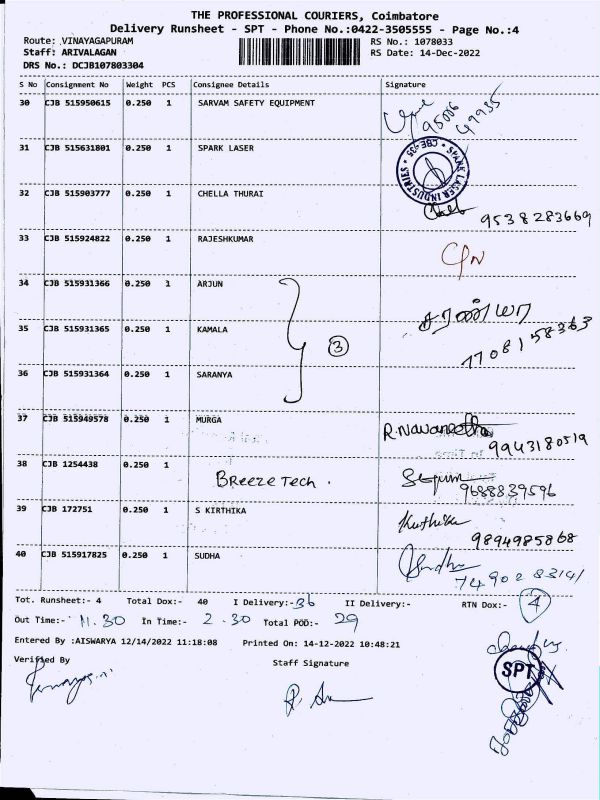 THE PROFESSIONAL COURIERS, Coimbatore
Delivery Runsheet - SPT - Phone No.:0422-3505555 - Page No.:4
Route: VINAYAGAPURAM
RS No.: 1078033
Staff: ARIVALAGAN
RS Date: 14-Dec-2022
DRS No.: DCJB107803304
S No Consignment No Weight PCS Consignee Details Signature
30 CJB 515950615 0.250 1 SARVAM SAFETY EQUIPMENT
95006
47935
31 CJB 515631801 0.250 1 SPARK LASER
SPARK LASER INDUSTRIES * CBE-35 *
32 CJB 515903777 0.250 1 CHELLA THURAI
9538283669
33 CJB 515924822 0.250 1 RAJESHKUMAR
34 CJB 515931366 0.250 1 ARJUN
சரண்யா
35 CJB 515931365 0.250 1 KAMALA
3
7708158363
36 CJB 515931364 0.250 1 SARANYA
37 CJB 515949578 0.250 1 MURGA
R.Navaneetha
9943180519
38 CJB 1254438 0.250 1
BREEZE TECH.
9688839596
39 CJB 172751 0.250 1 S KIRTHIKA Kirthika
9894985868
40 CJB 515917825 0.250 1 SUDHA Sudha
Tot. Runsheet:- 4 Total Dox:- 40 I Delivery:- 36 II Delivery:- RTN Dox:- 4
Out Time:- 11.30 In Time:- 2.30 Total POD:- 29
Entered By :AISWARYA 12/14/2022 11:18:08 Printed On: 14-12-2022 10:48:21
Verified By
Staff Signature
SPT